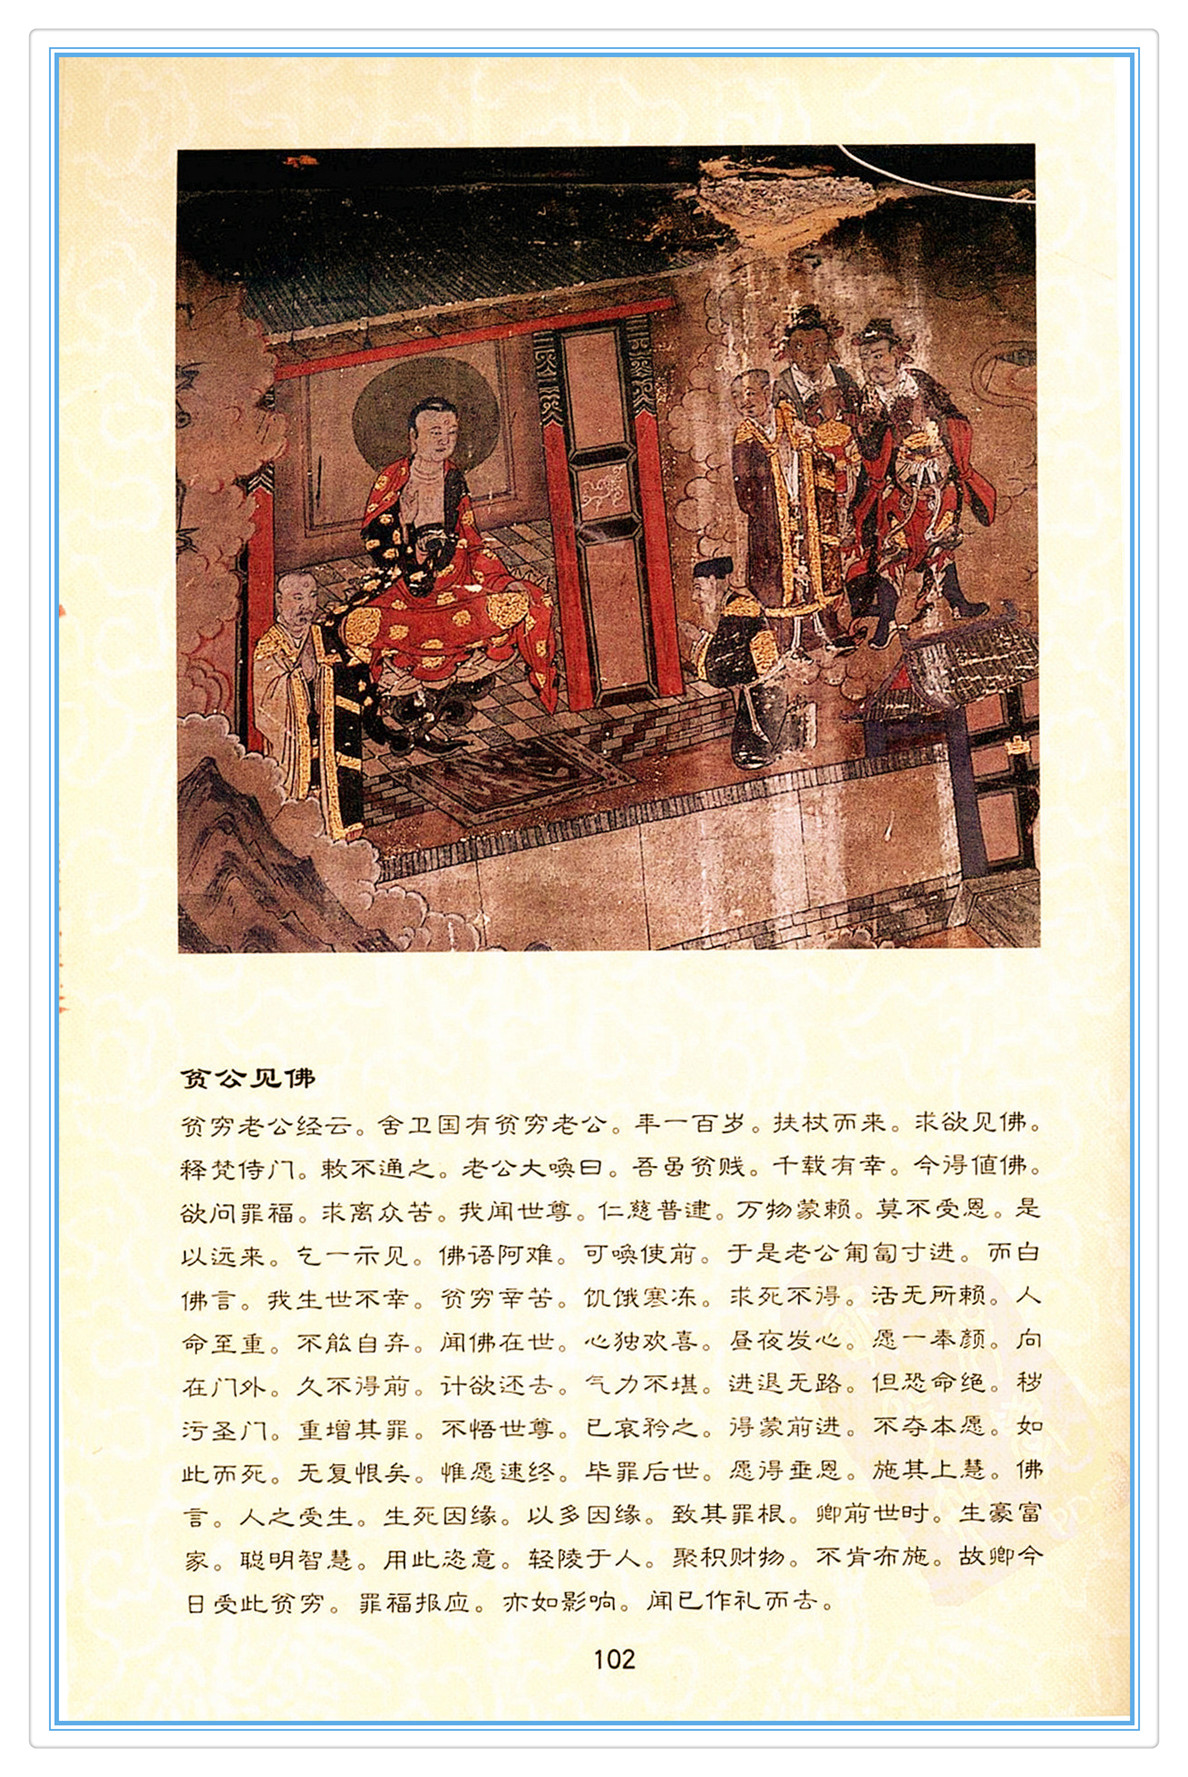 贫公见佛
贫穷老公经云。舍卫国有贫穷老公。年一百岁。扶杖而来。求欲见佛。
释梵侍门。敕不通之。老公大唤曰。吾虽贫贱。千载有幸。今得值佛。
欲问罪福。求离众苦。我闻世尊。仁慈普逮。万物蒙赖。莫不受恩。是
以远来。乞一示见。佛语阿难。可唤使前。于是老公匍匐寸进。而白
佛言。我生世不幸。贫穷辛苦。饥饿寒冻。求死不得。活无所赖。人
命至重。不能自弃。闻佛在世。心独欢喜。昼夜发心。愿一奉颜。向
在门外。久不得前。计欲还去。气力不堪。进退无路。但恐命绝。秽
污圣门。重增其罪。不悟世尊。已哀矜之。得蒙前进。不夺本愿。如
此而死。无复恨矣。惟愿速终。毕罪后世。愿得垂恩。施其上慧。佛
言。人之受生。生死因缘。以多因缘。致其罪根。卿前世时。生豪富
家。聪明智慧。用此恣意。轻陵于人。聚积财物。不肯布施。故卿今
日受此贫穷。罪福报应。亦如影响。闻已作礼而去。
102